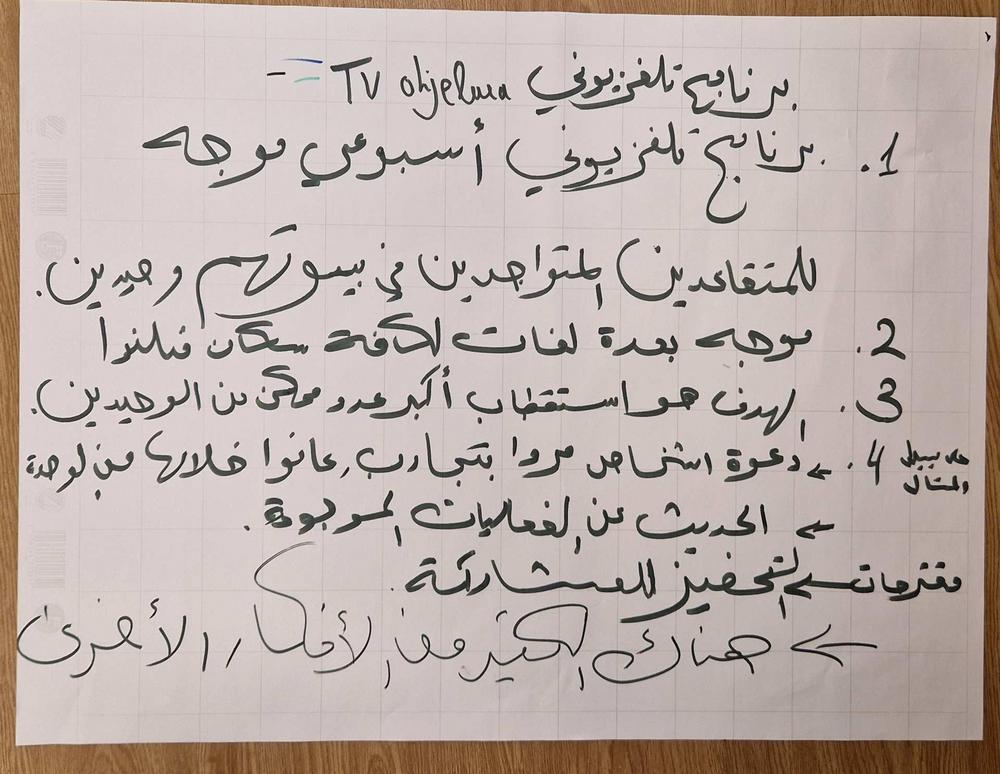 برنامج تلفزيوني TV ohjelma
1. برنامج تلفزيوني أسبوعي موجه
للمتقاعدين المتواجدين في بيوتهم وحيدين.
2. موجه بعدة لغات لكافة سكان فنلندا
3. الهدف هو استقطاب أكبر عدد ممكن من الوحيدين.
على سبيل المثال 4. ← دعوة اشخاص مروا بتجارب عانوا خلالها من لوحدة
← الحديث عن الفعاليات الموجودة.
مقترحات ← التحفيز للمشاركة.
← هناك الكثير من الأفكار الأخرى